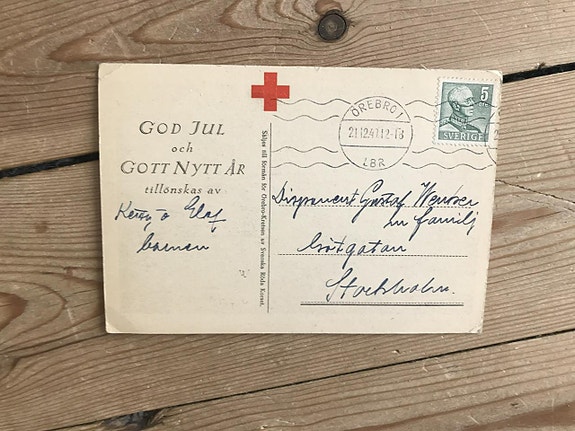 GOD JUL
och
GOTT NYTT ÅR
tillönskas av
Elof
barnen
Säljes till förmån för Örebro-Kretsen av Svenska Röda Korset.
ÖREBRO 1
LBR
5
ÖRE
SVERIGE
Disponent Gustaf
m familj
Götgatan
Stockholm.